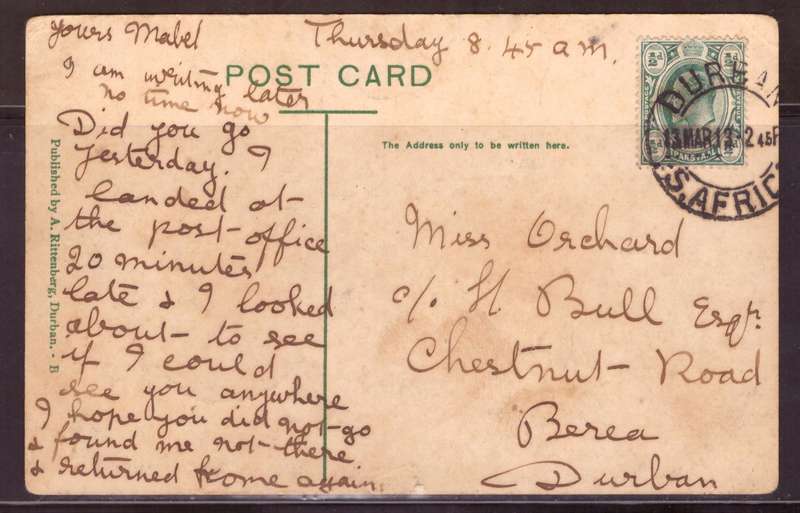 Thursday 8.45 a m.
POST CARD
Did you go
yesterday. I
landed at
the post office
20 minutes
late & I looked
about to see
if I could
see you anywhere
I hope you did not go
& found me not there
& returned home again.
I am writing later
no time now
Yours Mabel
The Address only to be written here.
Miss Orchard
c/o H Bull Esqr.
Chestnut Road
Berea
Durban
Published by A. Rittenberg, Durban. - B
DURBAN
13 MAR 13 - 2 45P
S. AFRIC